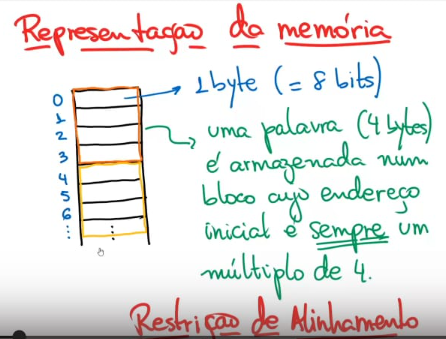 Representação da memória
0
1
2
3
4
5
6
⋮
⋮
1 byte (= 8 bits)
uma palavra (4 bytes)
é armazenada num
bloco cujo endereço
inicial é sempre um
múltiplo de 4.
Restrição de Alinhamento